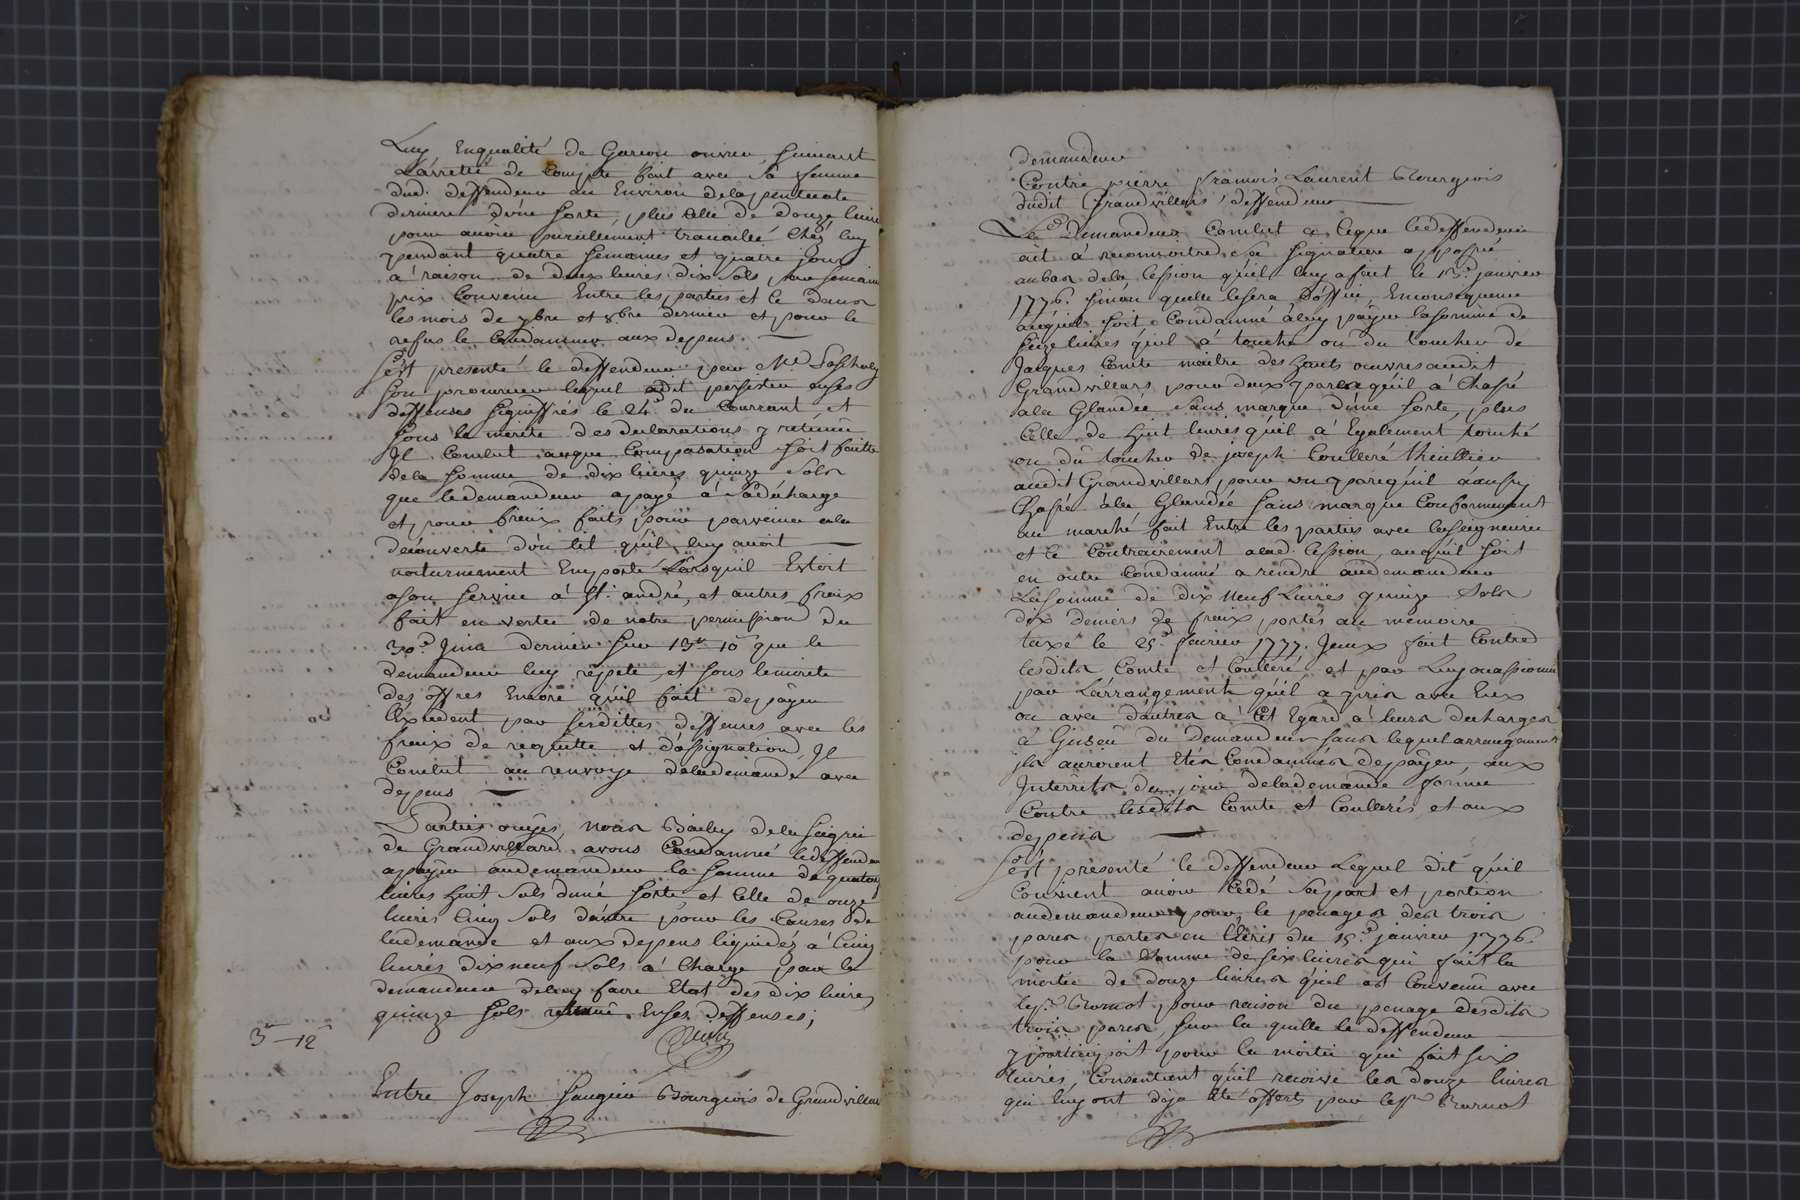 Luy Enqualité de Garcon ouvrier, suivant
L'arretté de Compte fait avec sa femme
dud. deffendeur au Environ delapentecote
derniere d'une sorte, plus celle de douze livres
pour avoir pareillement travaillé Chéz luy
pendant quatre semaines et quatre jours
a raison de deux livres dix sols par semaine
prix Convenu Entre les parties et ce dans
les mois de 7bre et 8bre dernier et pour le
refus le Condamner aux depens.
S'est presenté le deffendeur par Me
son procureur lequel a dit persister enses
deffenses signiffiés le 24e du Courrant, et
sous le merite des declarations y retenue
Il Conclut aceque Compasation soit faitte
dela somme de dix livres quinze sols
que ledemandeur apayé a sadécharge
et pour fraix faits pour parvenir ala
découverte d'un lit qu'il luy avoit
nocturnement Emporté Lorsquil Estoit
ason service à St. andré, et autres fraix
fait en vertu de notre permission du
30e Juin dernier que le
demandeur luy répete, et sous lemerite
des offres Encore qu'il fait depayer
l'Excedent par sesdittes deffenses avec les
fraix de requette et d'assignation, Il
Conclut au renvoye delademande avec
depens
Parties ouyes, nous Bailly dela seigrie
de Grandvillard avons Condamné ledeffendeur
apayer audemandeur la somme de quatorze
livres huit sols dune sorte et Celle de onze
livres Cinq sols dautre pour les Causes de
lademande et aux depens liquidez à Cinq
livres dixneuf sols a Charge par le
demandeur deluy faire Etat des dix livres
quinze sols retenu Enses deffenses;
3 — 12
Entre Joseph Saugier Bourgeois de Grandvillars
demandeur
Contre pierre francois Laurent Bourgeois
dudit Grandvillars, deffendeur
Le Demandeur Conclut a ceque ledeffendeur
ait à reconnoitre sa signature apposée
aubas dela Cession qu'il luy a fait le 15e janvier
1776. sinon quelle lesera d'office, Enconsequence
aceque soit Condamné aluy payer lasomme de
seize livres qu'il à touché ou du toucher de
Jacques Comte maitre des hauts ouvres audit
Grandvillars, pour deux pares qu'il a Chassé
ala Glandée sans marque d'une sorte, plus
Celle de huit livres qu'il a Egalement touché
ou dû toucher de joseph Coulleré thuillier
audit Grandvillars, pour un pare qu'il a aussy
Chassé ala Glandée sans marque Conformement
au marché fait Entre les parties avec laseigneurie
et ce Contrairement alad. Cession, acequil soit
en outre Condamné a rendre audemandeur
Lasomme de dix neuf Livres quinze sols
dix deniers de fraix portés au memoire
taxé le 25e fevrier 1777. Jceux fait Contre
lesdits Comte et Coulleré, et par Luy ocassionné
par L'arrangement qu'il a pris avec Eux
ou avec d'autres a Cet Egard à leurs decharges
à Linsçeu du Demandeur sans lequel arrangement
ils auroient Etés Condamnés depayer, aux
Interrets du jour delademande formée
Contre lesdits Comte et Coulleré, et aux
depens
S'est presenté le deffendeur Lequel dit qu'il
Convient avoir Cedé sapart et portion
audemandeur pour le penages des trois
pares portés en l'Ecrit du 15e janvier 1776.
pour la somme de six livres qui fait la
moitié de douze livres qu'il est Convenu avec
le Sr Bornot pour raison du penage desdits
trois pares, sur la quelle le deffendeur
y participoit pour la moitié qui fait six
livres, Consentent qu'il recoive les douze livres
qui luy ont déja été offert par le Sr Bornot